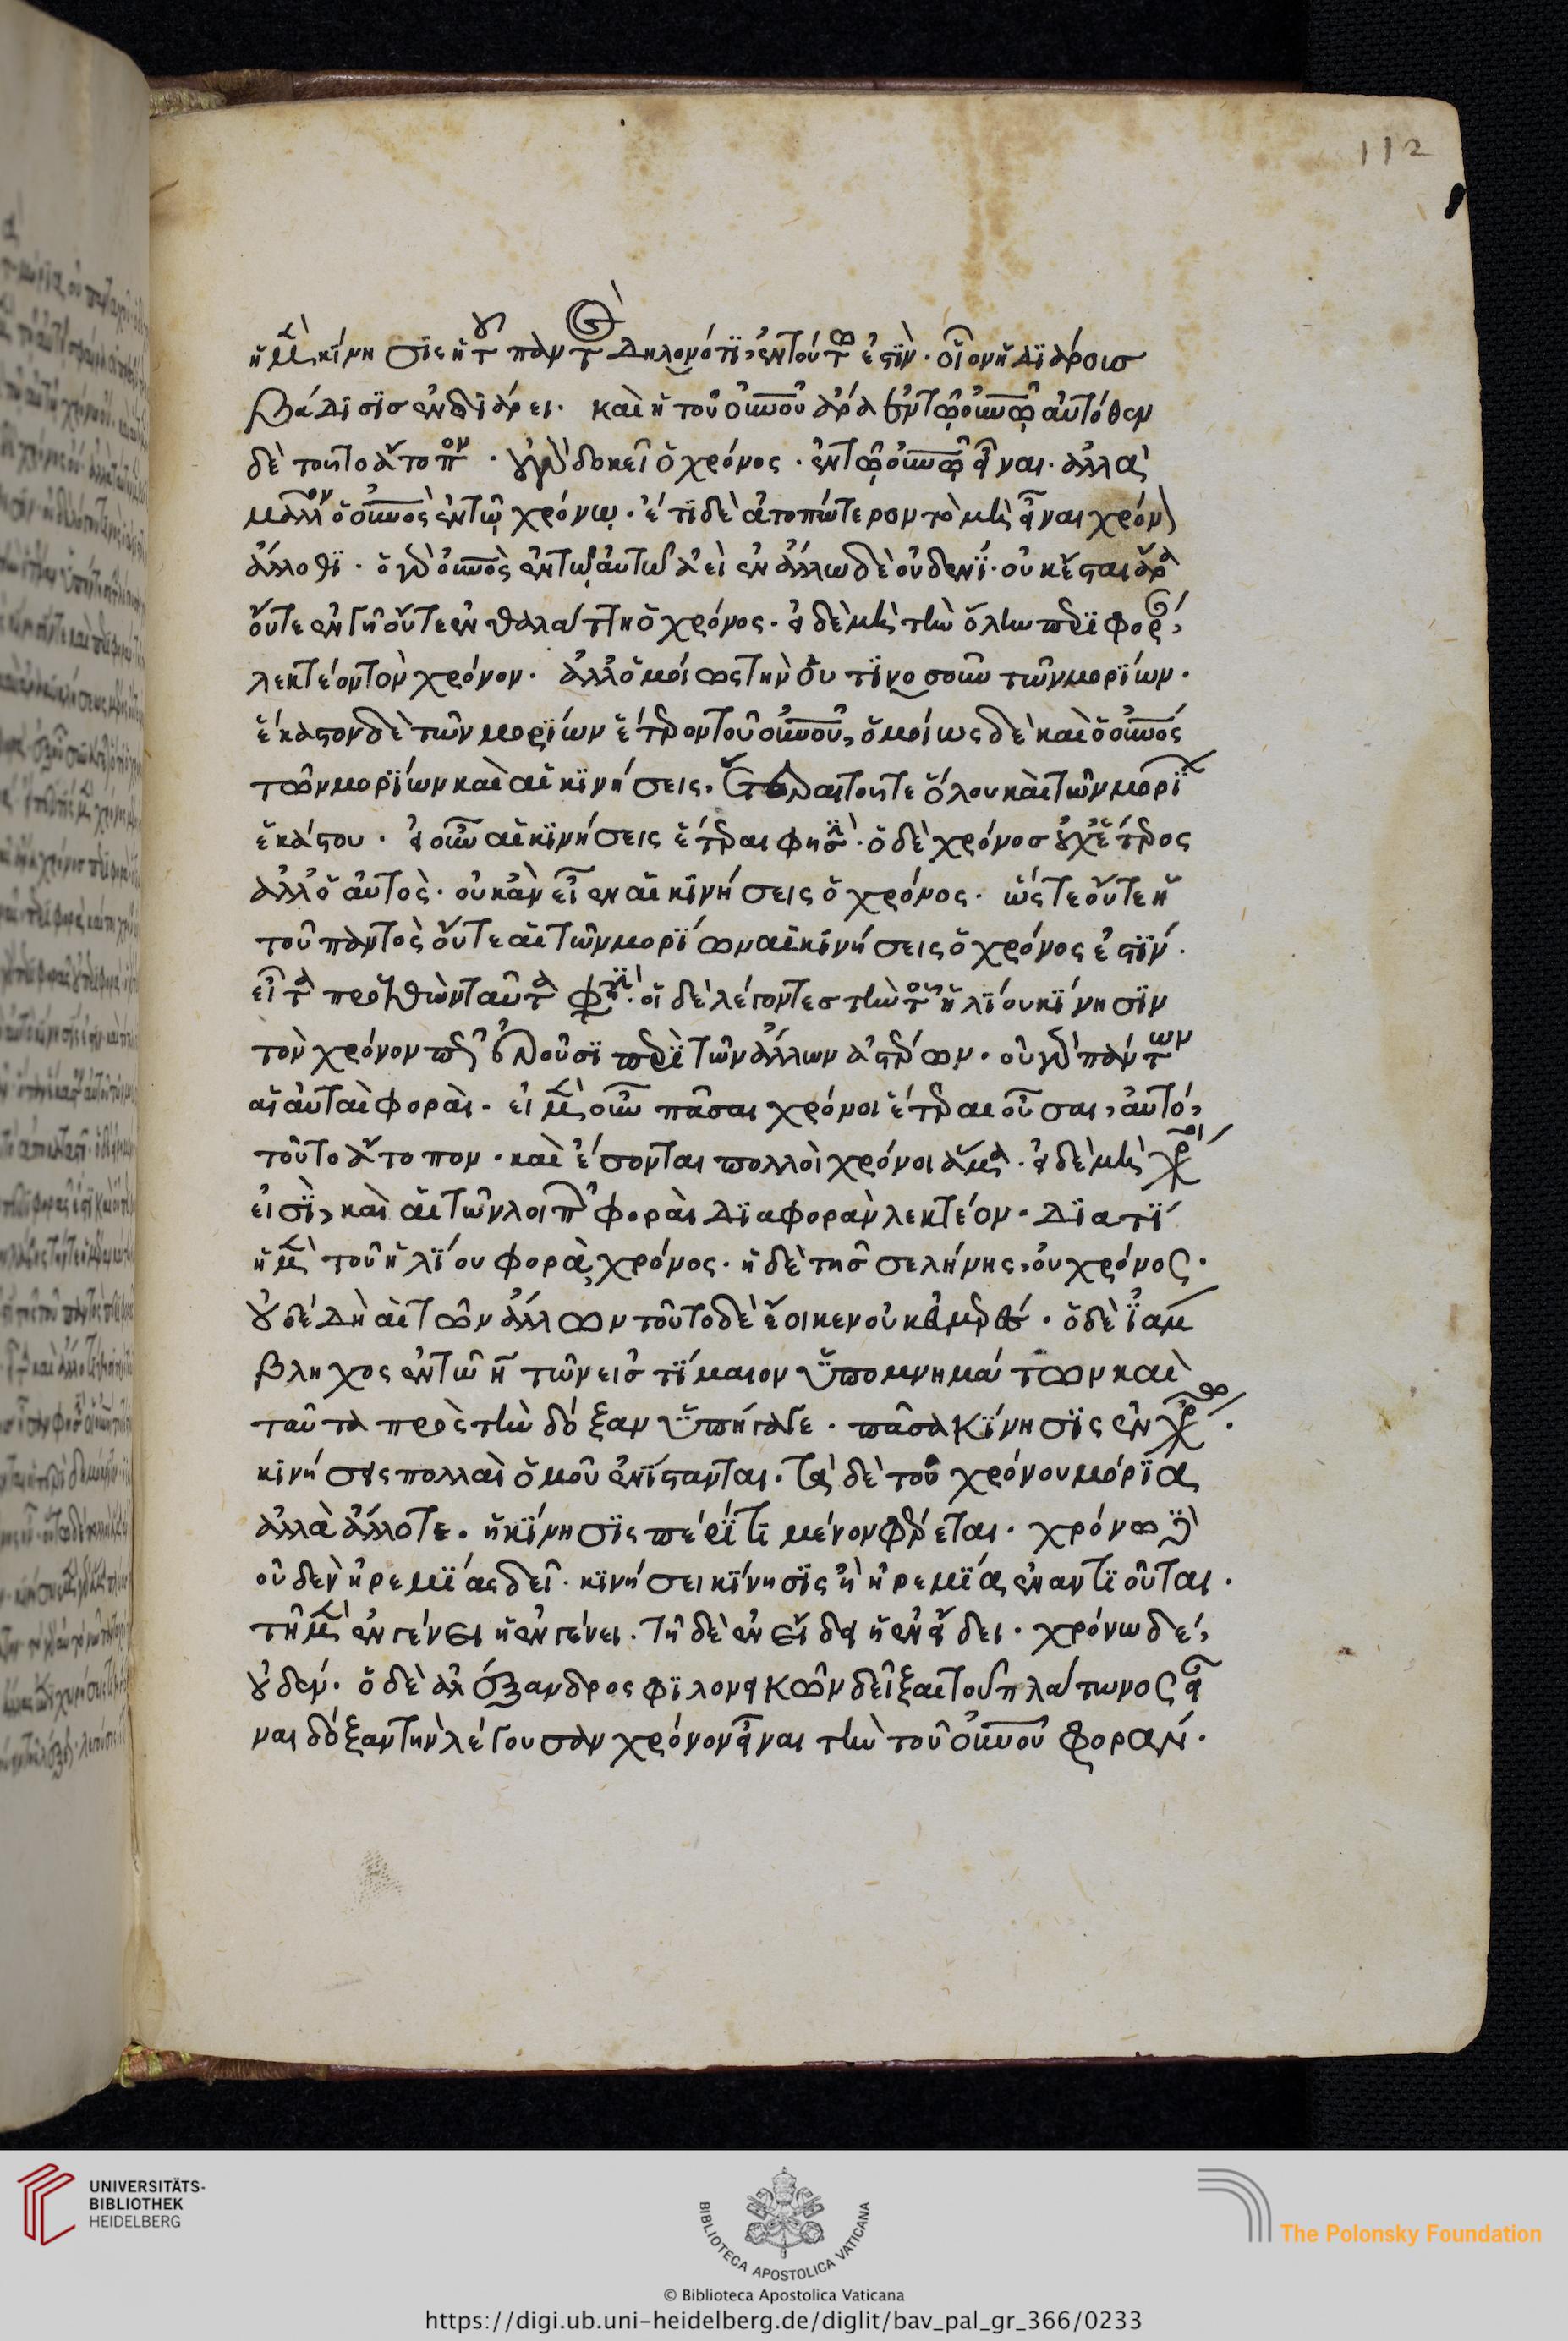 112
ἡ μὲν κίνησις ἡ τοῦ παντὸς δηλονότι, ἐν τούτω ἐστὶν. οἷον ἡ Διάρους
βάδισις ἐν διάρει. καὶ ἡ τοῦ οὐνοῦ ἄρα ἐν τῶ οὐνῶ αὐτόθεν
δὲ τοῦτο ἄτοπον. οὐ γὰρ δοκεῖ ὁ χρόνος. ἐν τῶ οὐνῶ εἶναι. ἀλλὰ
μᾶλλον ὁ οὐνὸς ἐν τῶ χρόνω. ἔτι δὲ ἀτοπώτερον τὸ μὴ εἶναι χρόνον
ἄλλοθι. ὁ γὰρ οὐνὸς ἐν τῶ αὐτῶ ἀεὶ ἐν ἄλλω δὲ οὐδενί. οὐκ ἔσται ἄρα
οὔτε ἐν γῆ οὔτε ἐν θαλάττη ὁ χρόνος. εἰ δὲ μὴ τὴν ὅλην περιφορὰν,
λεκτέον τὸν χρόνον. ἀλλ' ὁμοίως τὴν οὗτινοσοῦν τῶν μορίων.
ἕκαστον δὲ τῶν μορίων ἕτερον τοῦ οὐνοῦ, ὁμοίως δὲ καὶ ὁ οὐνός
τῶν μορίων καὶ αἱ κινήσεις. ἕτεραι τοῦ τε ὅλου καὶ τῶν μορίων
ἑκάστου. εἰ οὖν αἱ κινήσεις ἕτεραι φησὶ. ὁ δὲ χρόνος οὐχ ἕτερος
ἀλλ' ὁ αὐτὸς. οὐκ ἂν εἶεν αἱ κινήσεις ὁ χρόνος. ὥστε οὔτε ἡ
τοῦ παντὸς οὔτε αἱ τῶν μορίων αἱ κινήσεις ὁ χρόνος ἐστίν.
εἶτα προσθεὶς ταῦτα φησὶν. οἱ δὲ λέγοντες τὴν τοῦ ἡλίου κίνησιν
τὸν χρόνον περὶ τῶν ἄλλων ἀστέρων. οὐ γὰρ πάντων
αἱ αὐταὶ φοραὶ. εἰ μὲν οὖν πᾶσαι χρόνοι ἕτεραι οὖσαι, αὐτό,
τοῦτο ἄτοπον. καὶ ἔσονται πολλοὶ χρόνοι ἅμα. εἰ δὲ μὴ χρόνοι
εἰσὶ, καὶ αἱ τῶν λοιπῶν φοραὶ διαφορὰν λεκτέον. διατί
ἡ μὲν τοῦ ἡλίου φορὰ, χρόνος. ἡ δὲ τῆς σελήνης, οὐ χρόνος.
οὐδὲ δὴ αἱ τῶν ἄλλων τοῦτο δὲ ἔοικεν οὐκ . ὁ δὲ ἰαμ
βλιχος ἐν τῶ η τῶν εἰς τίμαιον ὑπομνημάτων καὶ
ταῦτα πρὸς τὴν δόξαν ὑπήγαγε. πᾶσα κίνησις ἐν χρόνω.
κινήσεις πολλαὶ ὁμοῦ ἐνίστανται. τὰ δὲ τοῦ χρόνου μόρια
ἄλλα ἄλλοτε. ἡ κίνησις περί τι μένον φέρεται. χρόνω δὲ
οὐδὲν ἠρεμίας δεῖ. κινήσει κίνησις ἢ ἠρεμία ἐναντιοῦται.
τῆ μὲν ἐν γένει ἡ ἐν γένει. τῆ δὲ ἐν εἴδει ἡ ἐν εἴδει. χρόνω δέ,
οὐδέν. ὁ δὲ ἀλέξανδρος φιλονεικῶν δεῖξαι τοῦ πλάτωνος εἶ
ναι δόξαν τὴν λέγουσαν χρόνον εἶναι τὴν τοῦ οὐνοῦ φοράν.
UNIVERSITÄTS-
BIBLIOTHEK
HEIDELBERG
BIBLIOTECA APOSTOLICA VATICANA
© Biblioteca Apostolica Vaticana
The Polonsky Foundation
https://digi.ub.uni-heidelberg.de/diglit/bav_pal_gr_366/0233